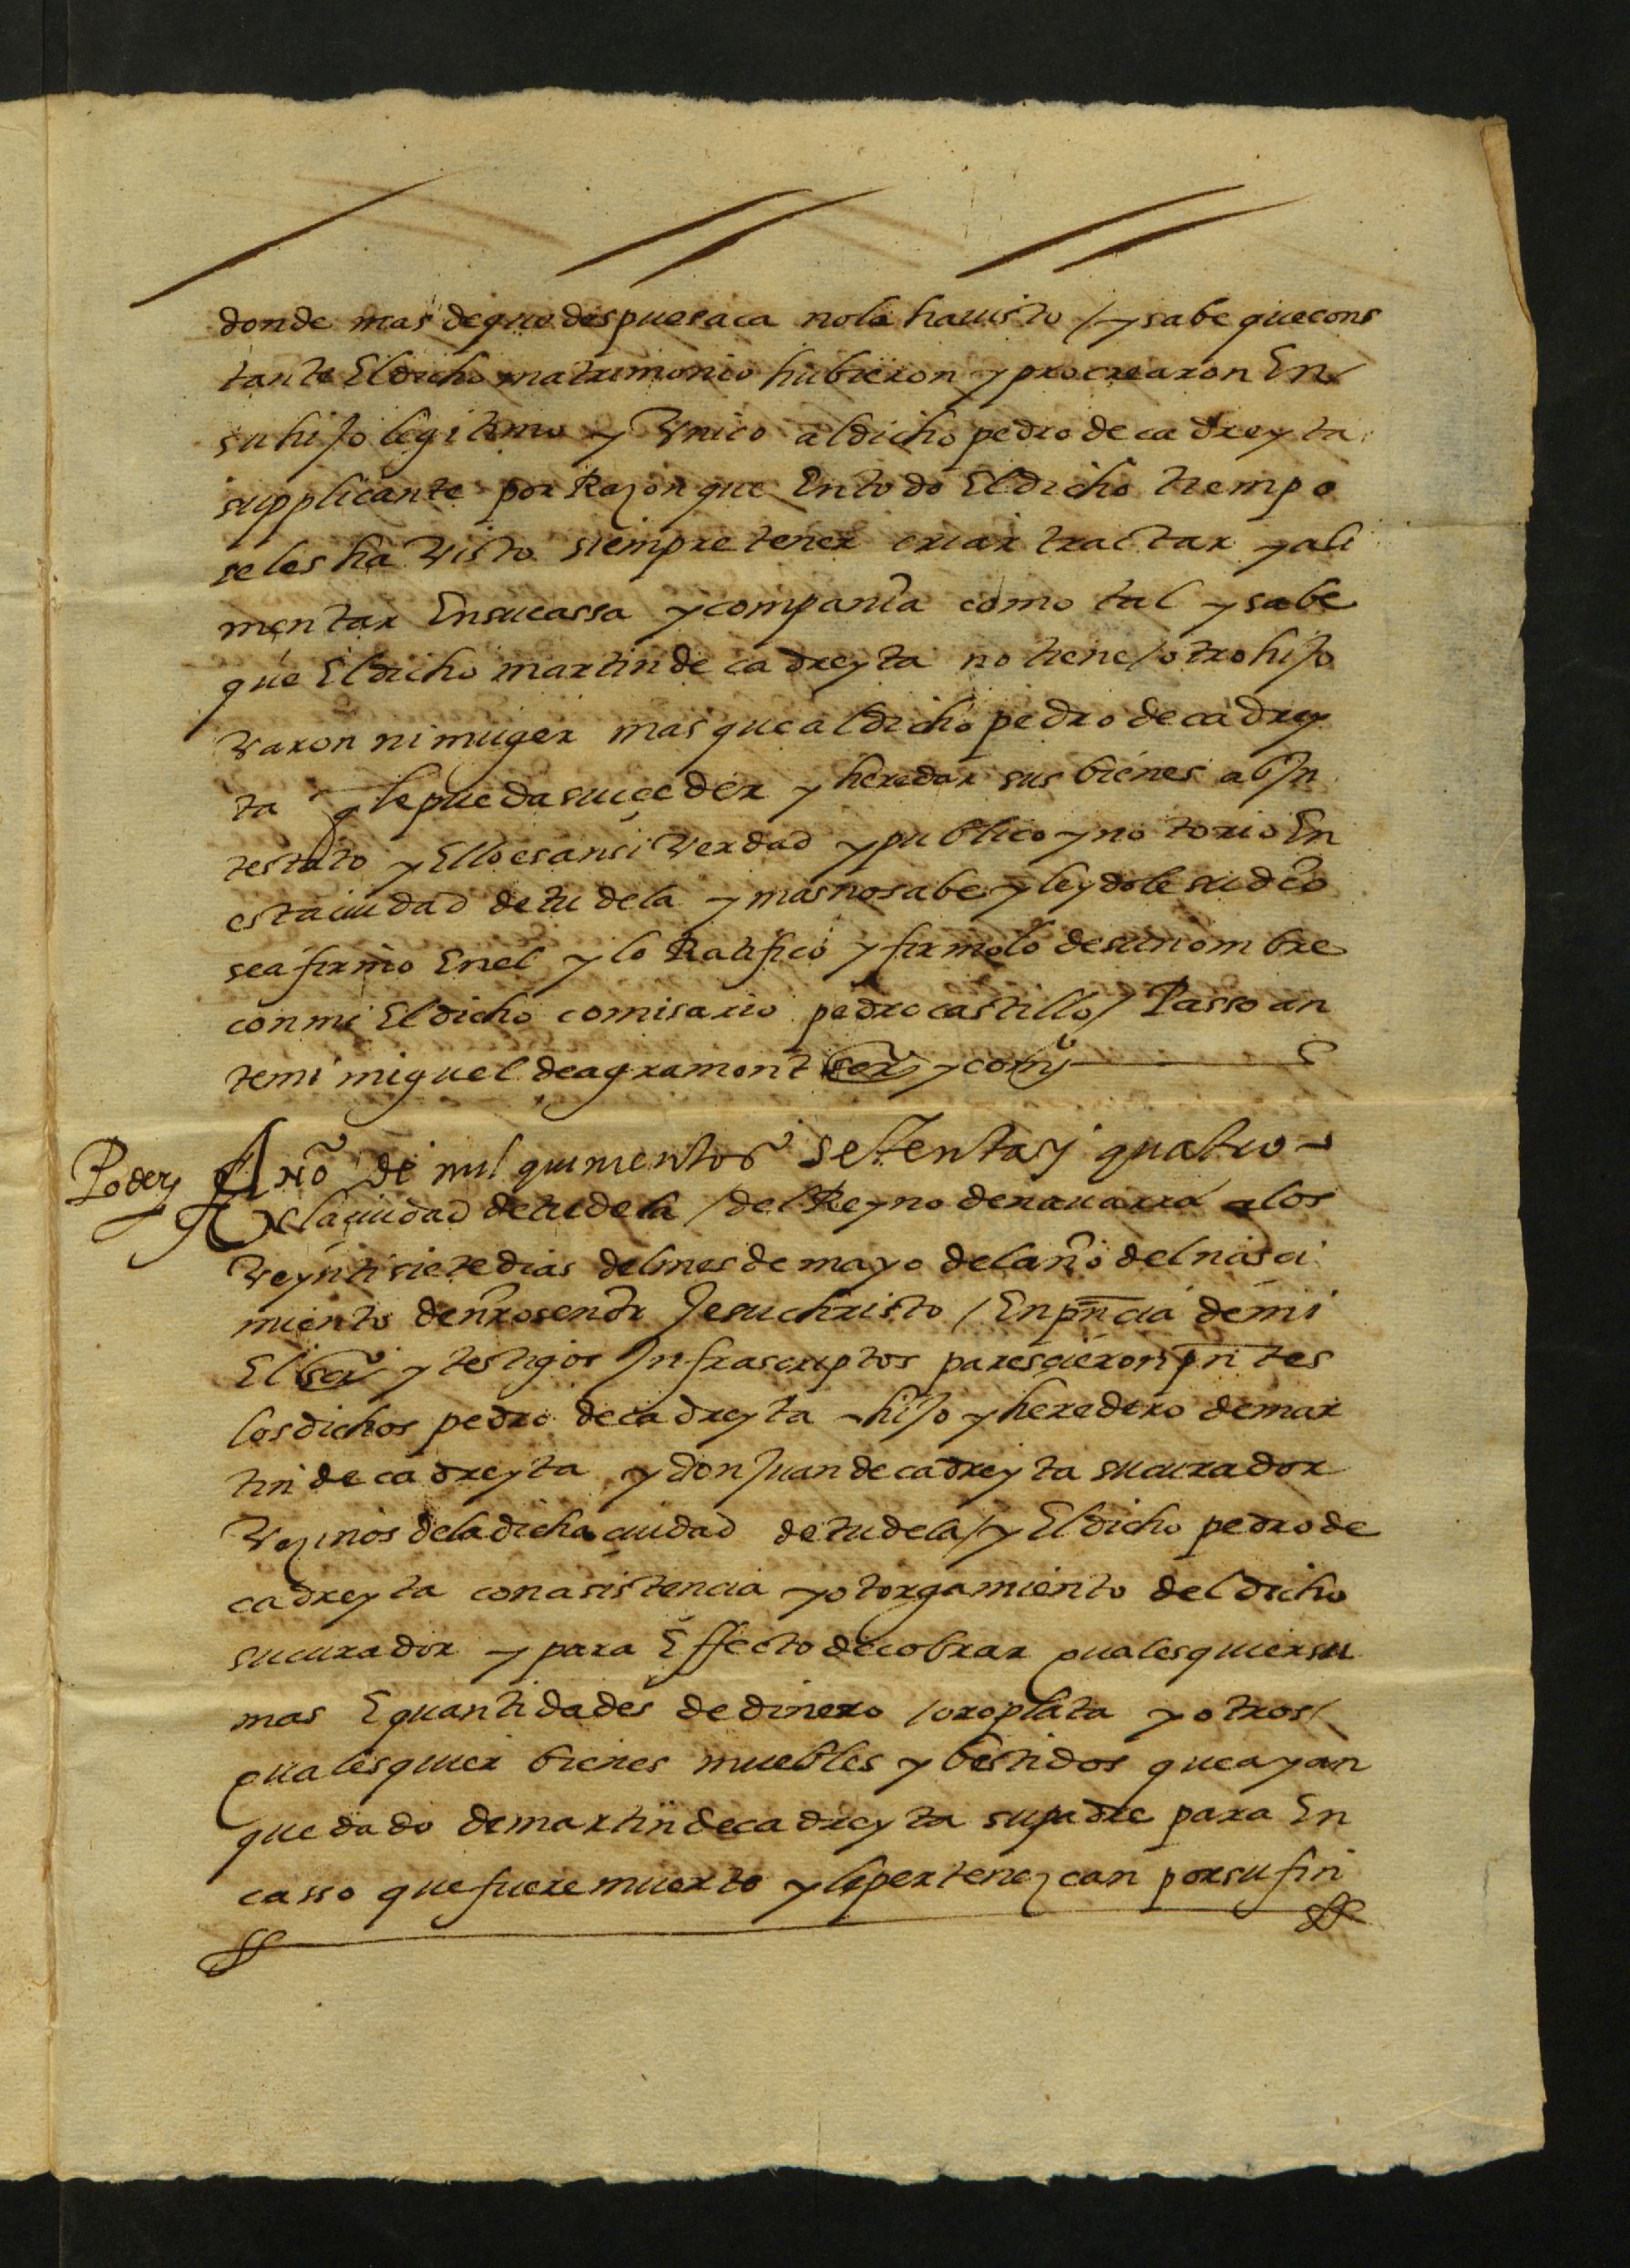 donde mas de que despues aca no lo ha uisto / y sabe que cons
tante El dicho matrimonio hubieron y procrearon En
su hijo legitimo y Vnico al dicho pedro de cadreyta
supplicante por Razon que En todo El dicho tiempo
se les ha Visto siempre tener criar tractar y ali
mentar En su cassa y compañia como tal y sabe
que El dicho martin de cadreyta no tiene / otro hijo
Varon ni muger mas que al dicho pedro de cadrey
ta q le pueda suçeder y heredar sus bienes ab in
testato y Ello es ansi Verdad y publico y notorio En
esta ciudad de tudela y mas no sabe y leydole su dcõ
se afirmo En el y lo Ratifico y firmolo de su nombre
con mi El dicho comisario pedro castillo / Passo an
te mi miguel de agramont scrº y comº
Poder Año de mil quinientos setenta y quatro
En la çiudad de tudela / del Reyno de nauarra a los
Veynti siete dias del mes de mayo del año del nasci
miento de nrõ señor Jesu christo / En pñcia de mi
El scrº y testigos Infrascriptos paresçieron pñtes
los dichos pedro de cadreyta hijo y heredero de mar
tin de cadreyta y don Juan de cadreyta su curador
Vezinos de la dicha ciudad de tudela / y El dicho pedro de
cadreyta con asistencia y otorgamiento del dicho
su curador y para Effecto de cobrar qualesquier su
mas E quantidades de dinero / oro plata y otros /
qualesquier bienes muebles y bestidos que ayan
quedado de martin de cadreyta su padre para En
casso que fuere muerto y le pertenezcan por su fin